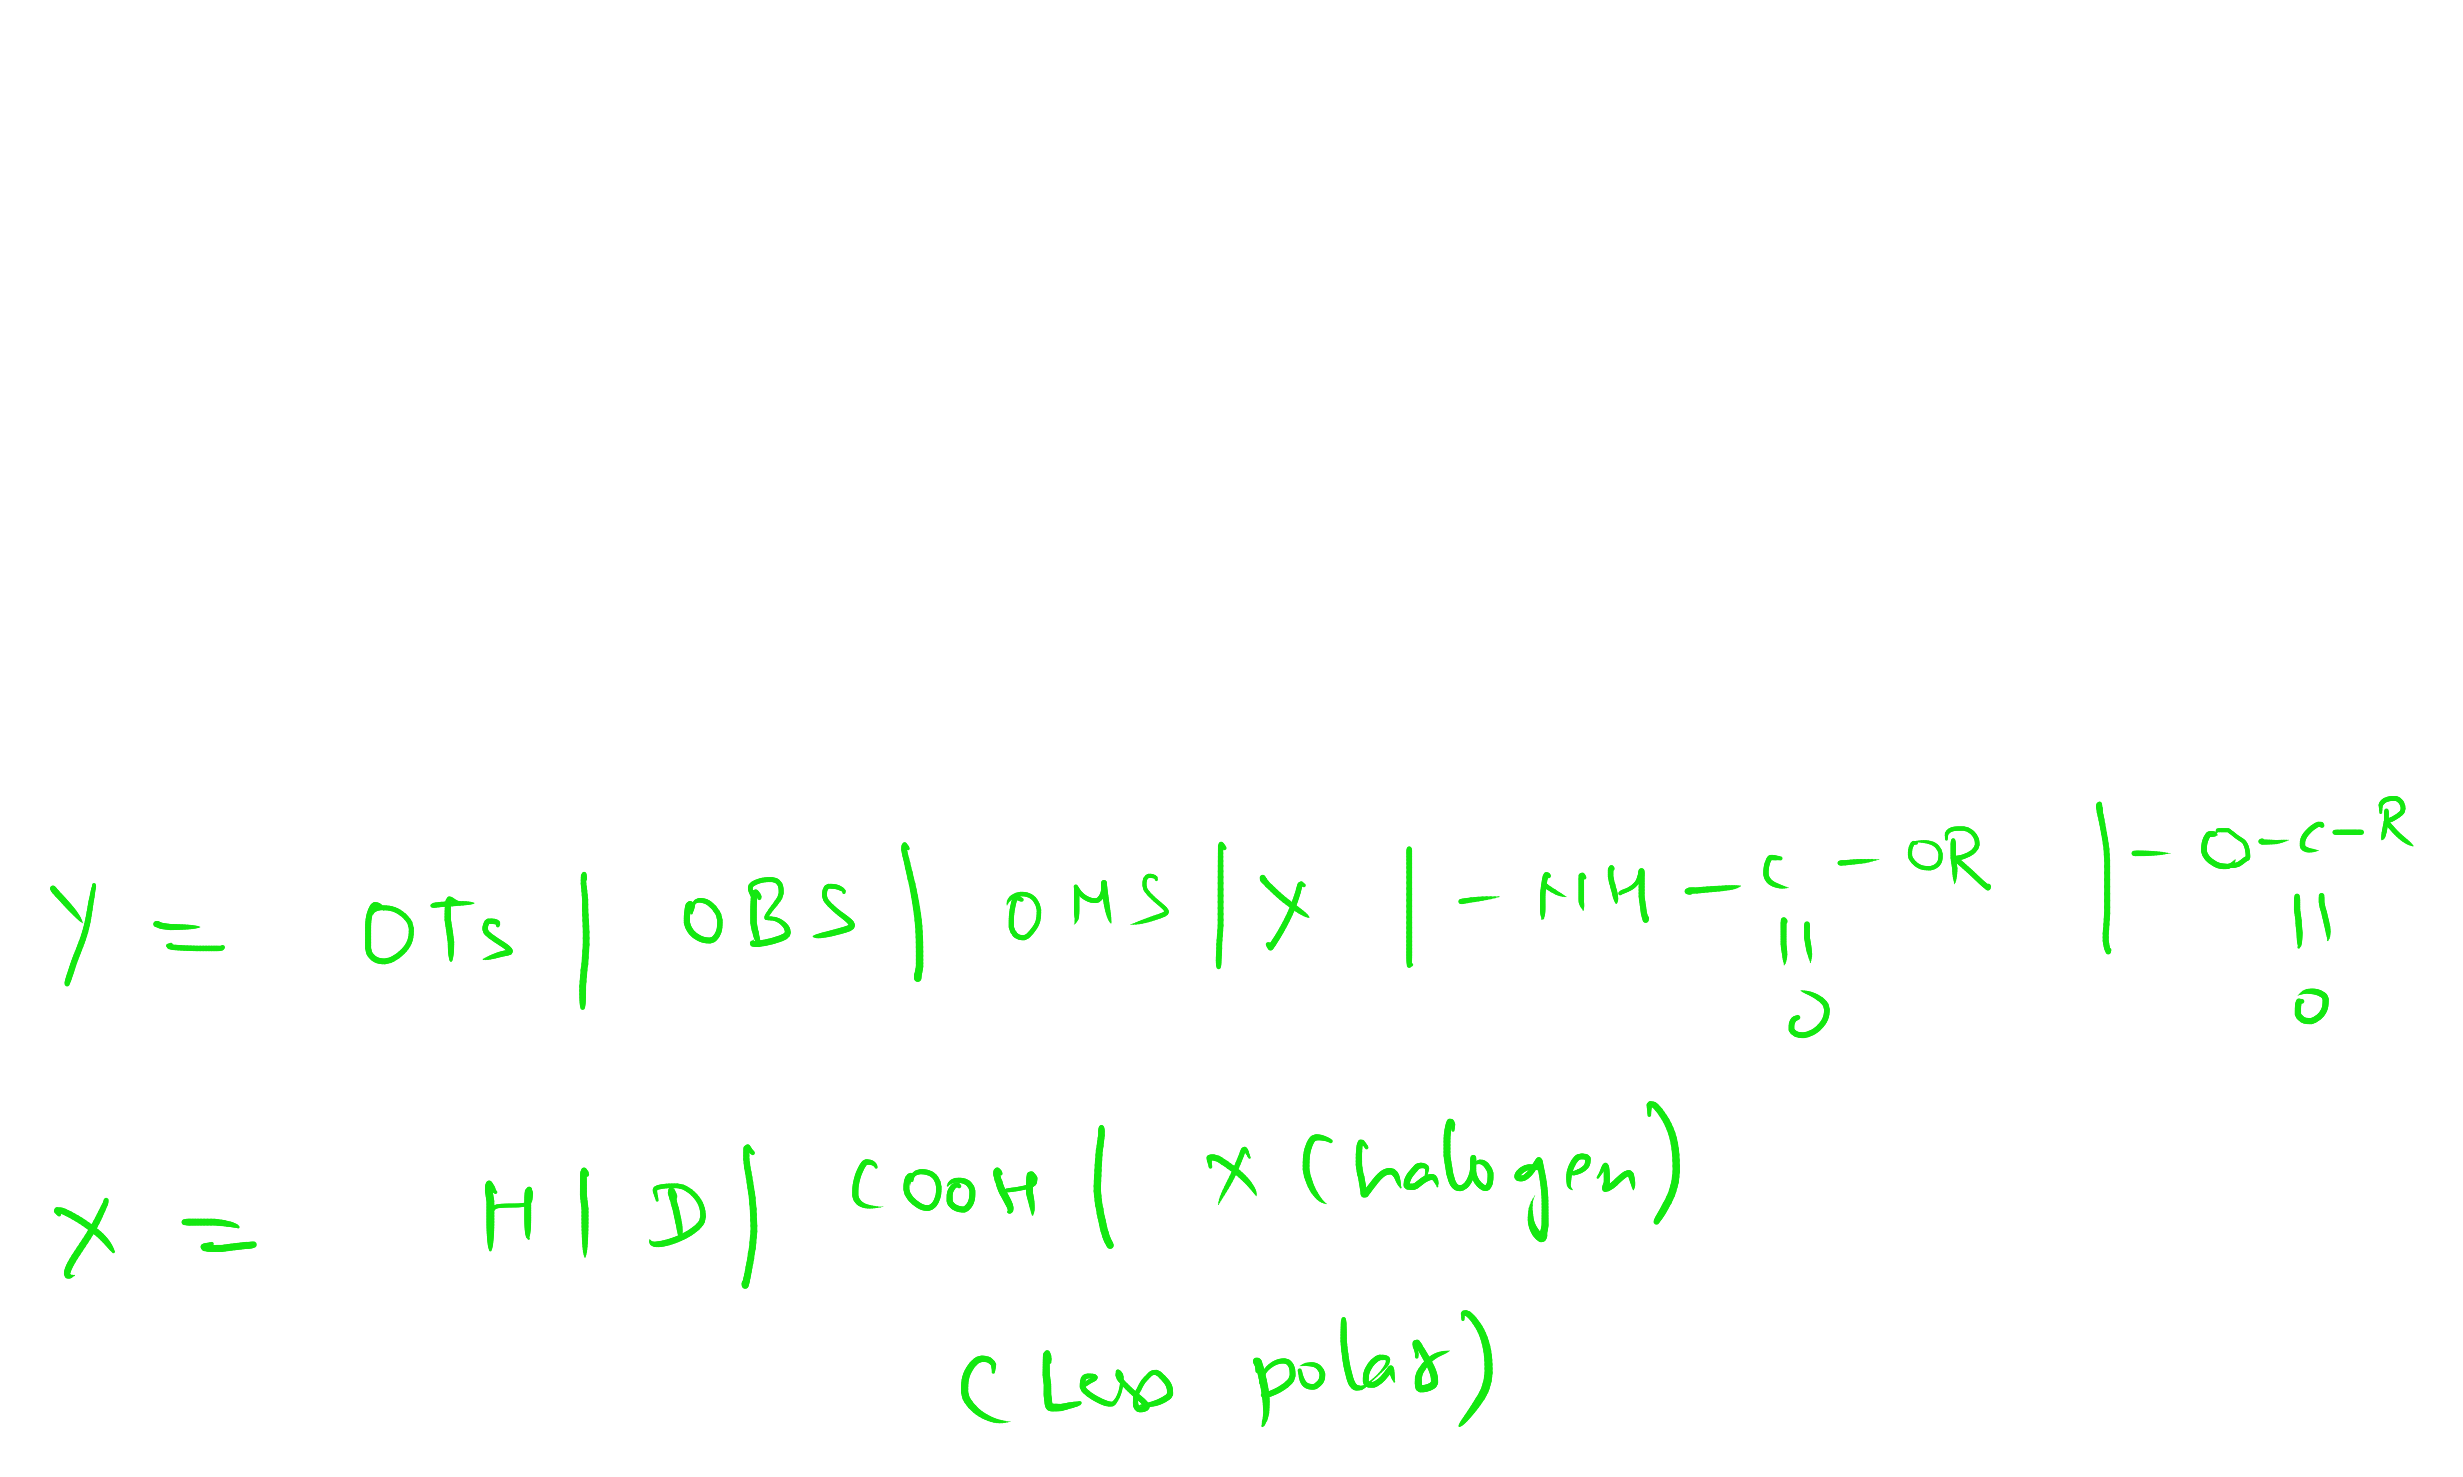 Y = OTs | OBS | OMS | X | - NH - C - OR | - O - C - R
|| ||
O O
X = H | D | COOH | X (halogen)
(Less polar)